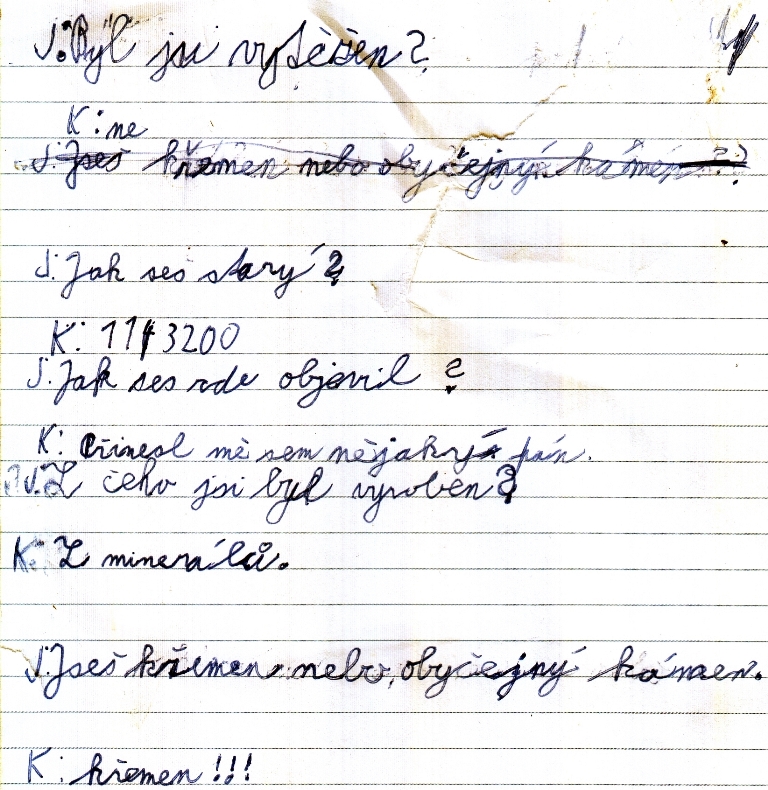 J: Byl jsi vytěšen?
K: ne
J: Jseš křemen nebo obyčejný kámen??
J: Jak ses starý?
K: 1143200
J: Jak ses zde objevil?
K: Přinesl mě sem nějaký pán.
J: Z čeho jsi byl vyroben?
K: Z minerálů.
J: Jseš křemen nebo, obyčejný kámen.
K: křemen!!!